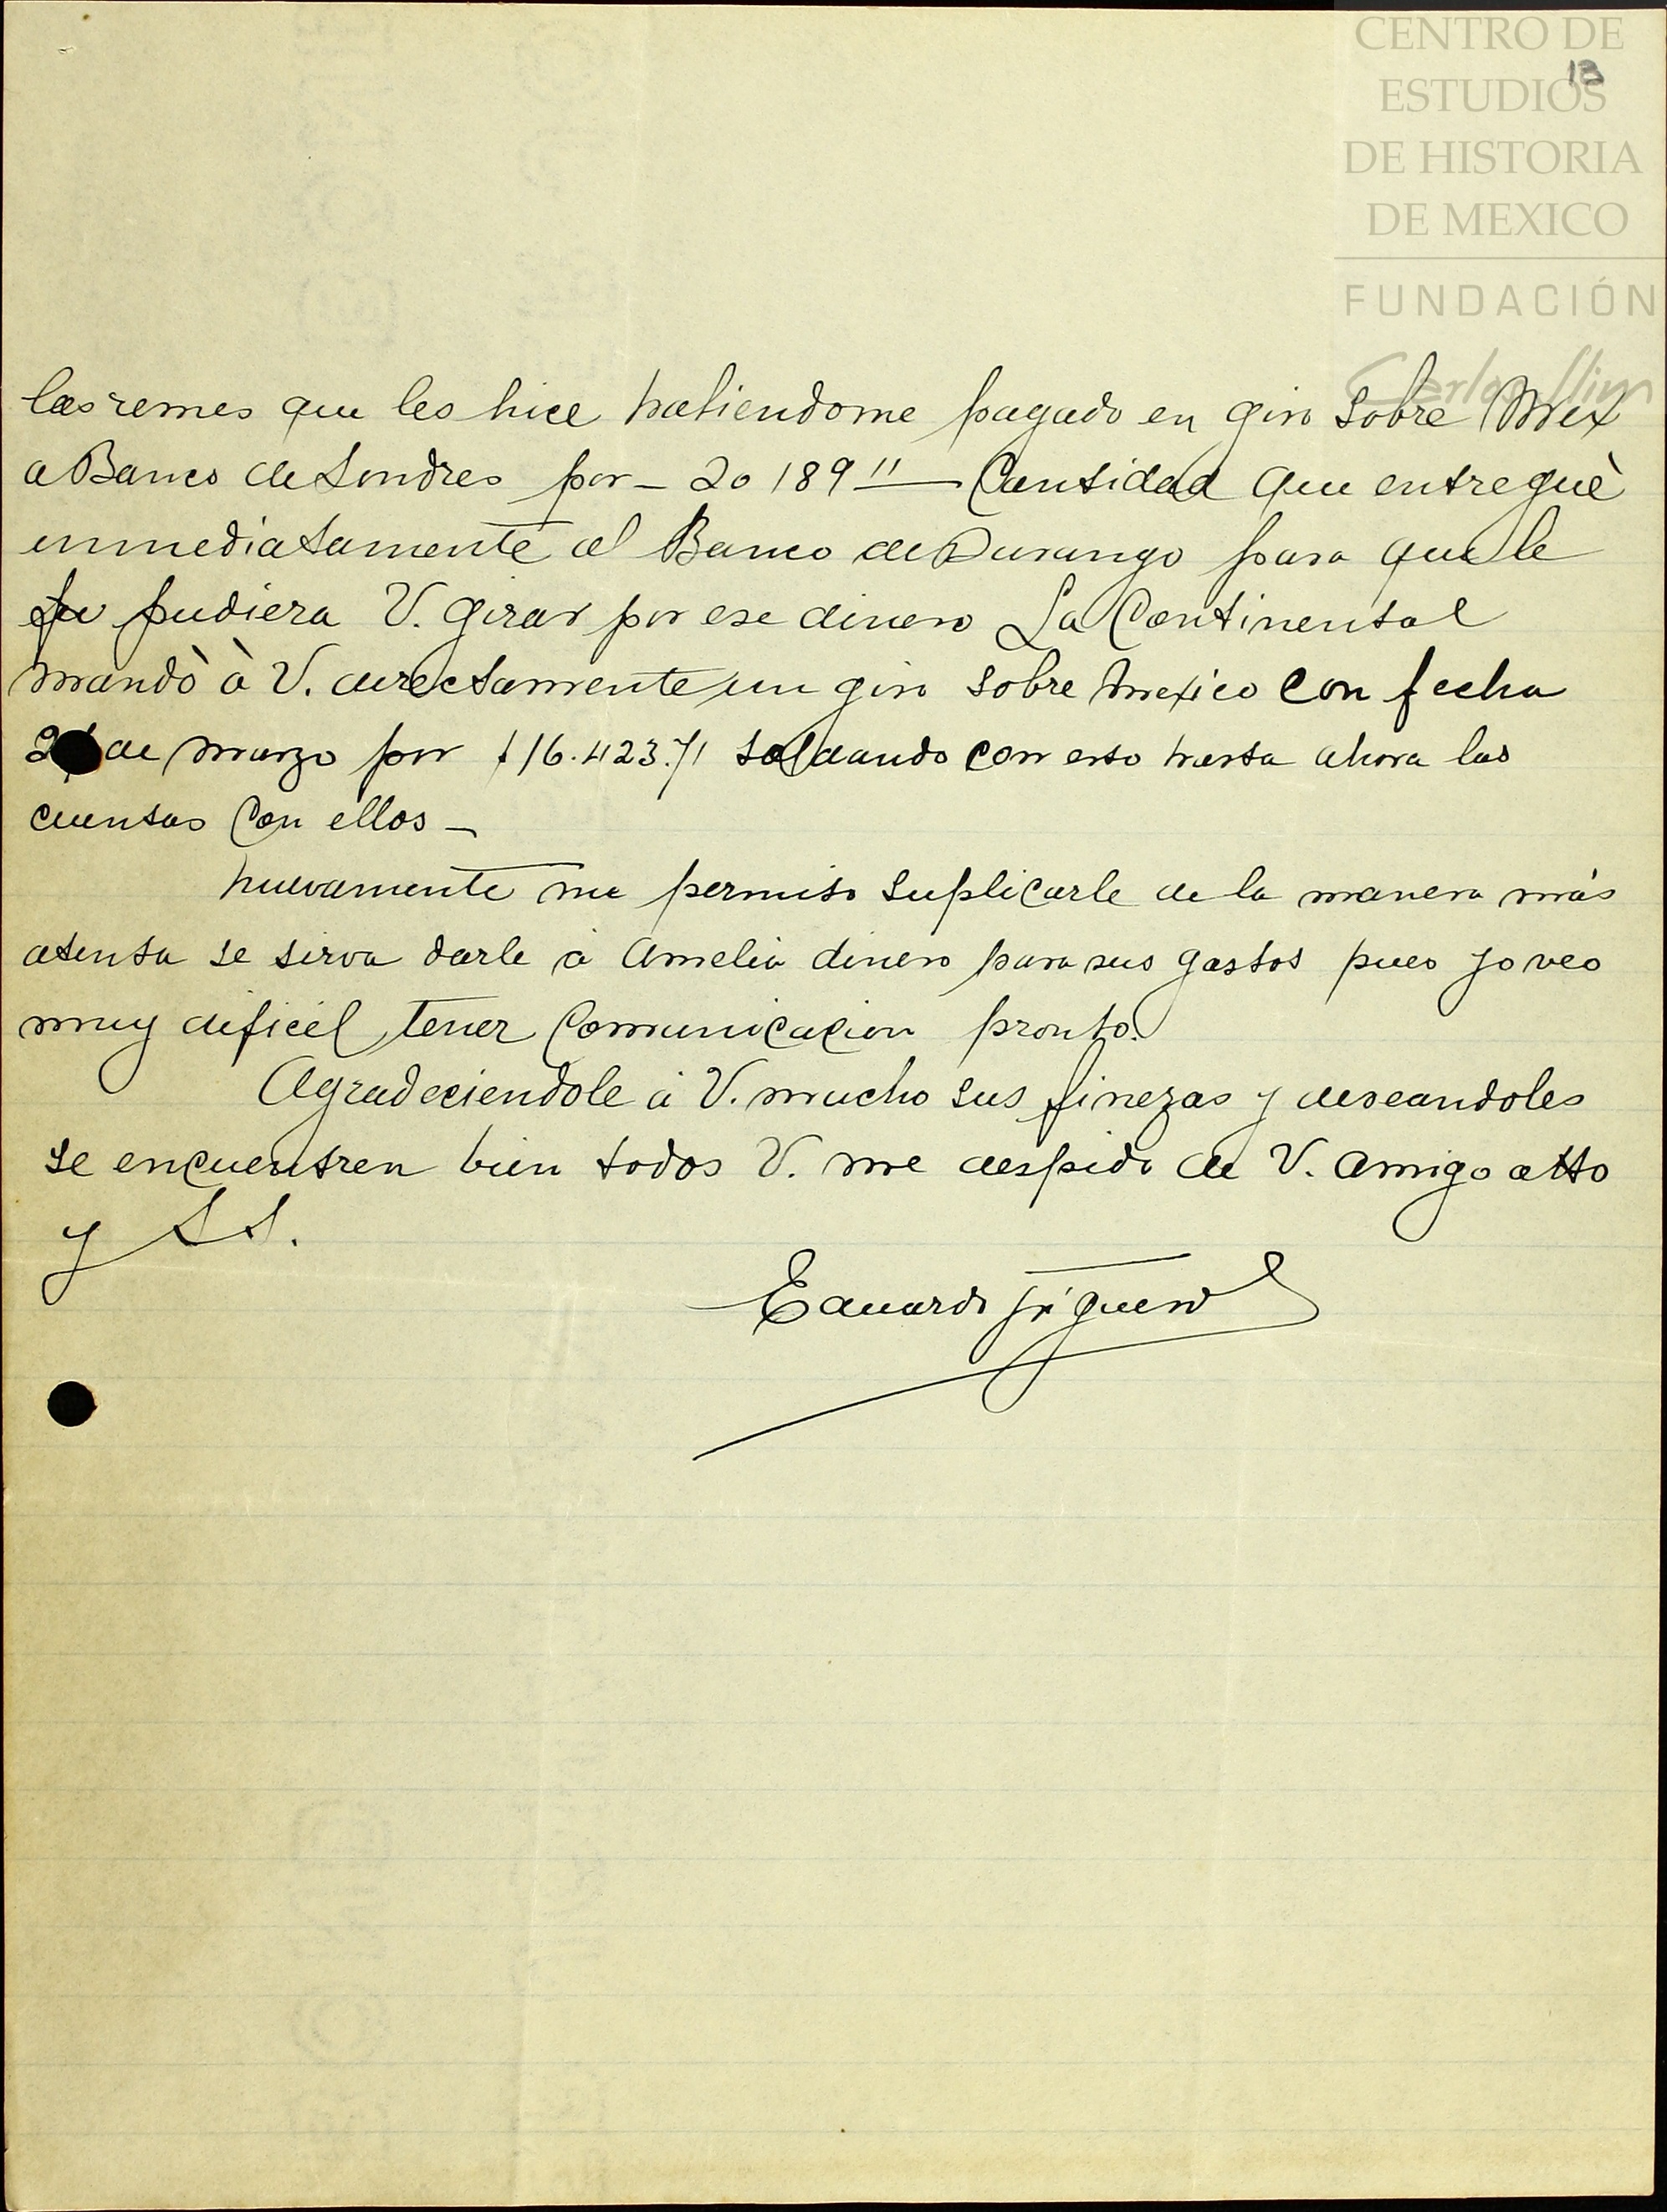 CENTRO DE
ESTUDIOS
DE HISTORIA
DE MEXICO
FUNDACIÓN
Carlos Slim
13
las remes que les hice habiendome pagado en giro sobre Mex
a Banco de Londres por — 20 189 11 — Cantidad que entreguè
inmediatamente al Banco de Durango para que le
pudiera V. girar por ese dinero La Continental
mandò à V. directamente un giro sobre Mexico con fecha
de Marzo por $16.423.71 saldando con esto hasta ahora las
cuentas con ellos —
Nuevamente me permito suplicarle de la manera más
atenta se sirva darle á Amelia dinero para sus gastos pues yo veo
muy dificil tener comunicacion pronto.
Agradeciendole á V. mucho sus finezas y deseandoles
se encuentren bien todos V. me despido de V. amigo atto
y S S.
Eduardo Yñiguero